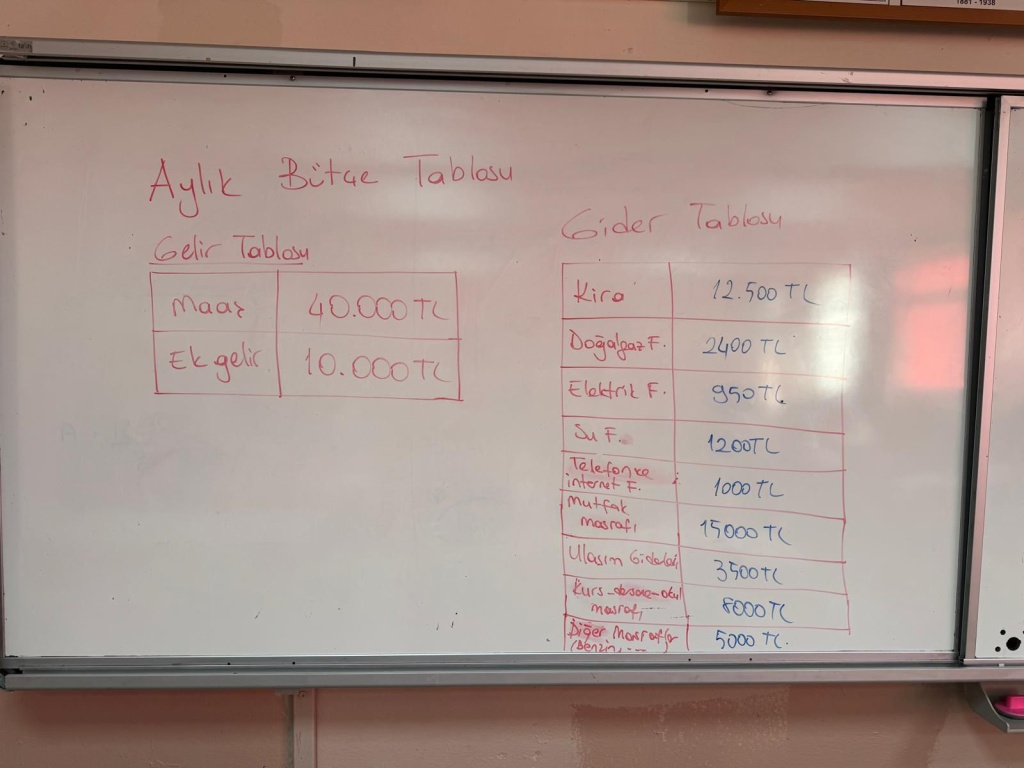 1881 - 1938
Aylık Bütçe Tablosu
Gelir Tablosu
Maaş 40.000 TL
Ek gelir 10.000 TL
Gider Tablosu
Kira 12.500 TL
Doğalgaz F. 2400 TL
Elektrik F. 950 TL
Su F. 1200 TL
Telefon ve
internet F. 1000 TL
Mutfak
masrafı 15000 TL
Ulaşım Giderleri 3500 TL
Kurs-dersane-okul
masrafı 8000 TL
Diğer Masraflar
(Benzin, ... 5000 TL.